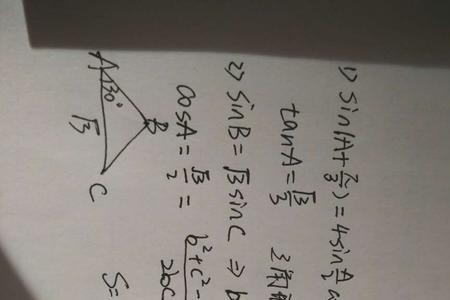 1) sin(A+π/3)=4sin A/2
tanA=√3/3
2) sinB=√3sinC ⇒ b
cosA=√3/2=b²+c²-/2bc
A 30° B
√3
C
S=